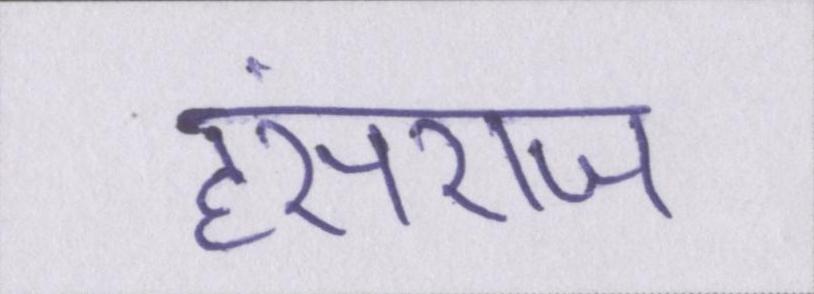 हंसराज